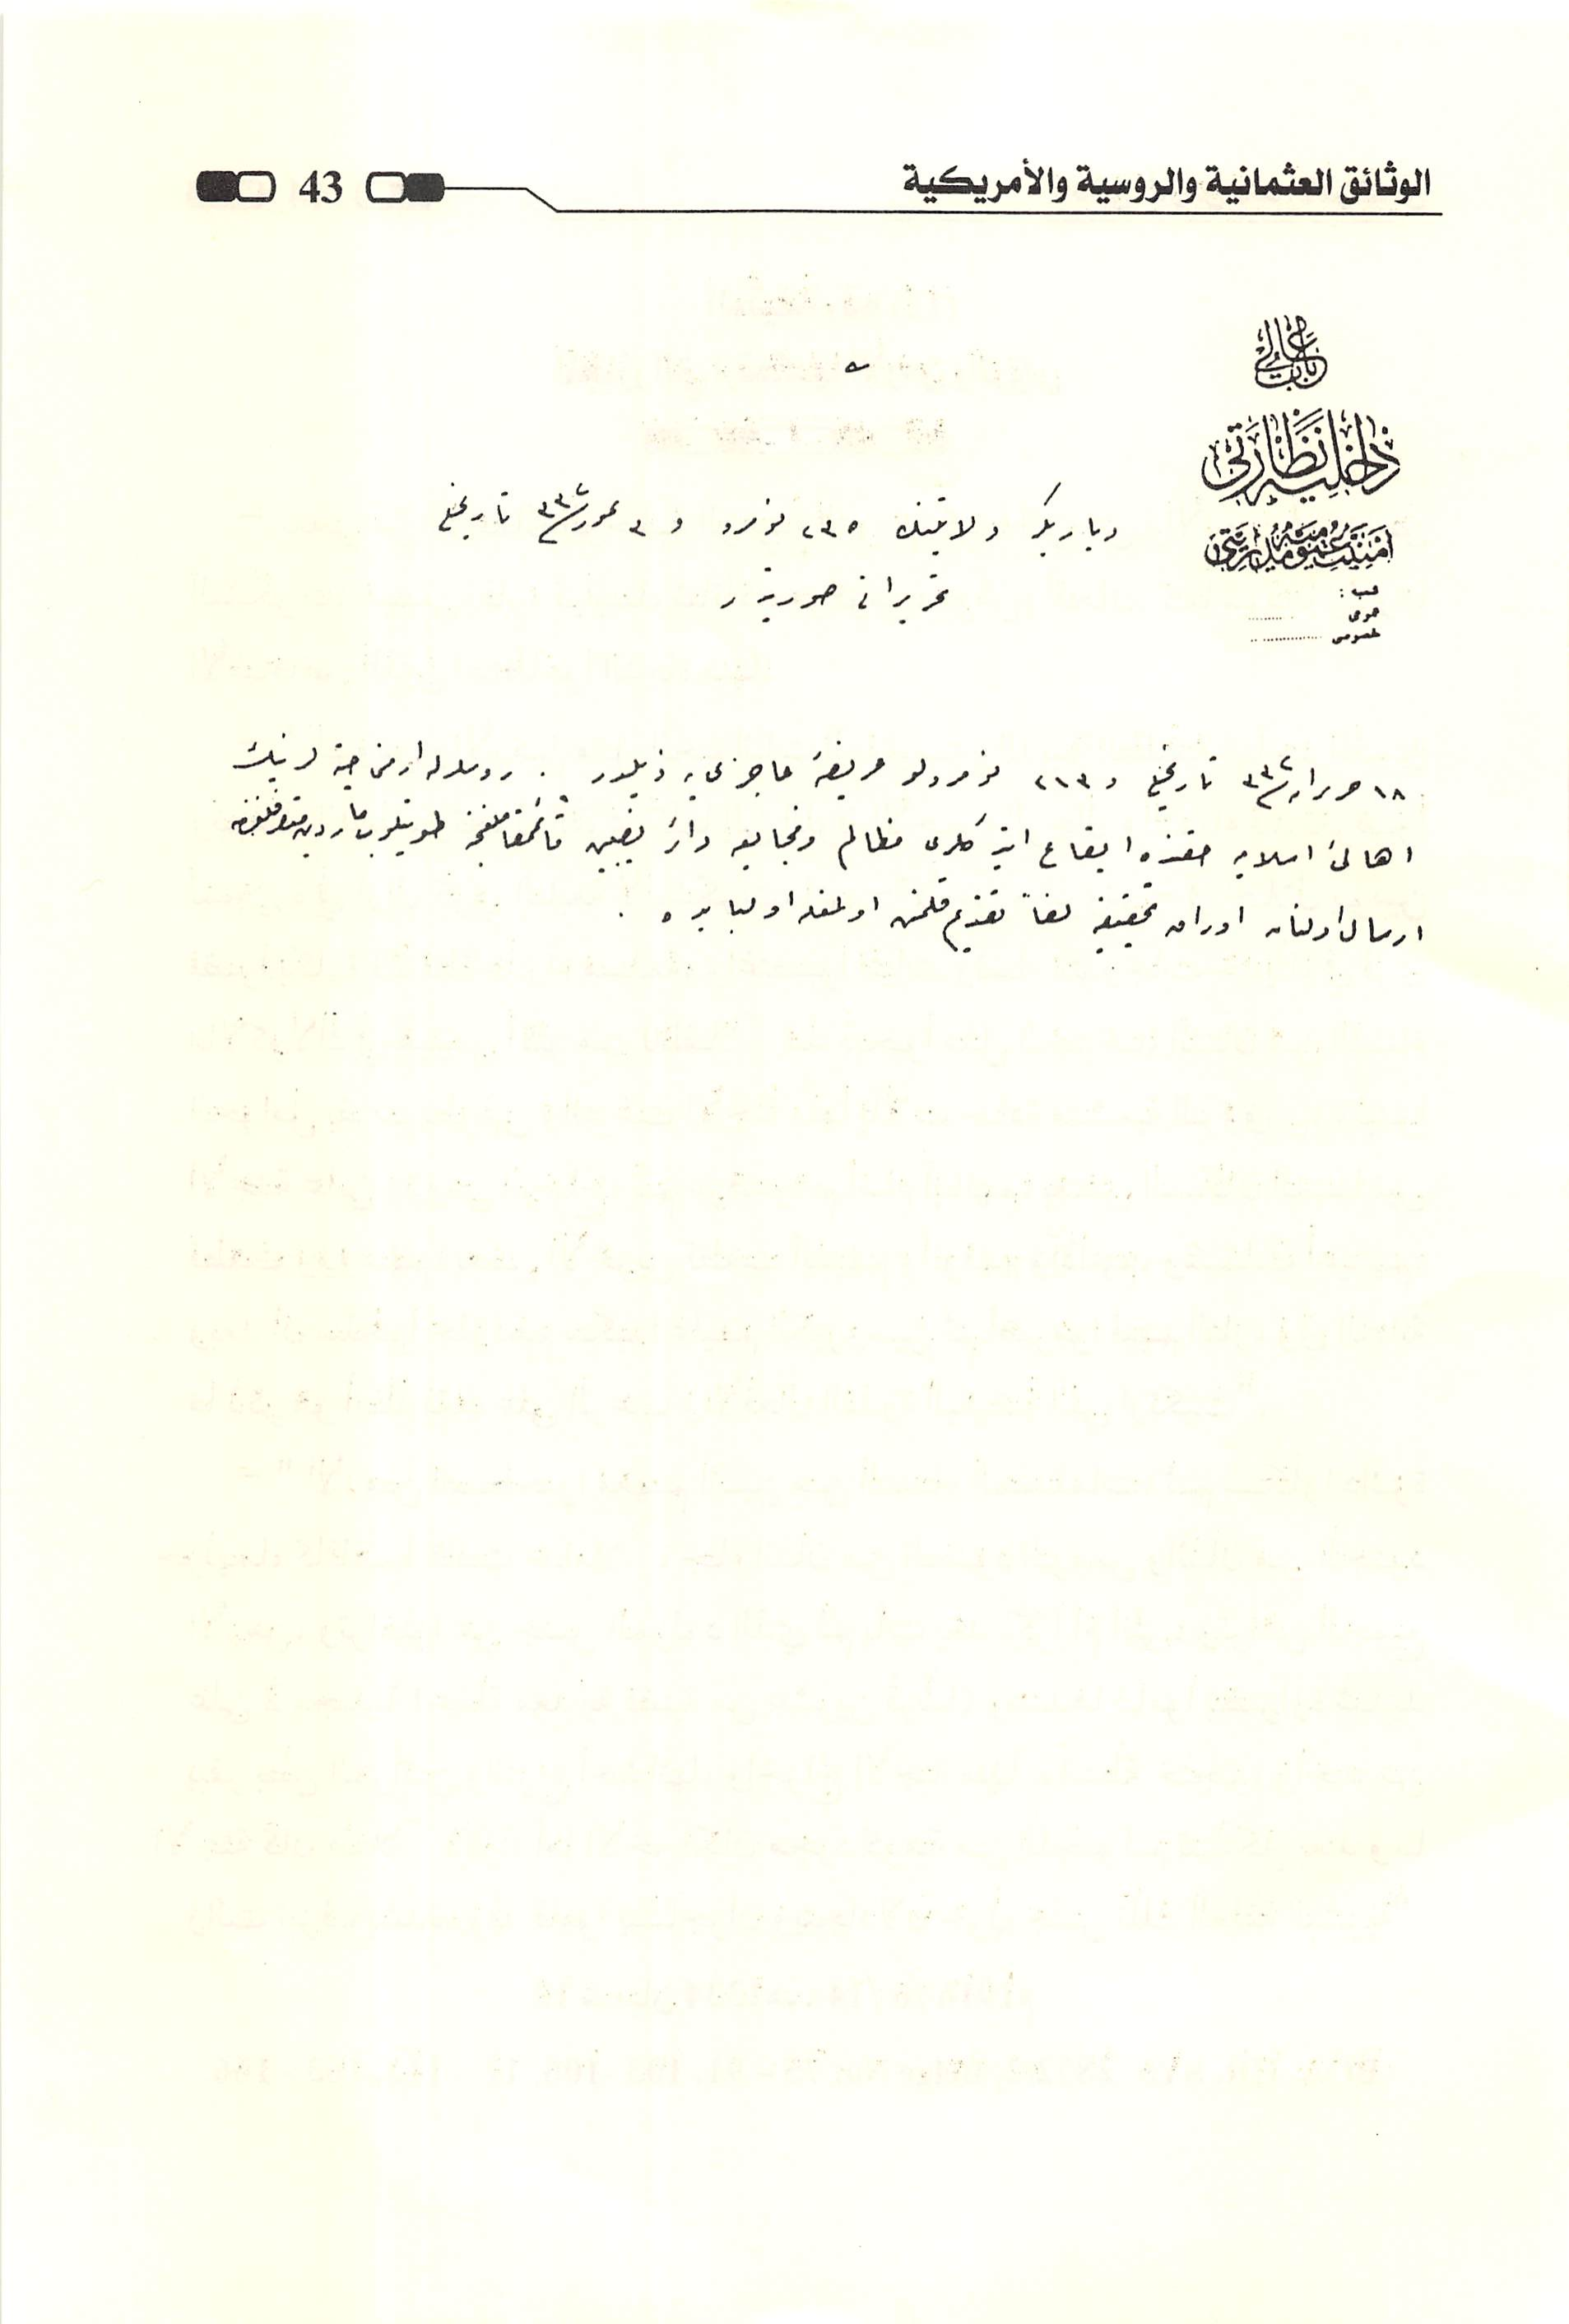 الوثائق العثمانية والروسية والأمريكية
43
باب عالی
داخلیه نظارتی
امنیت عمومیه مدیریتی
شعبه :
عمومی
خصوصی
دیاربکر ولایتنك ٢٣٥ نومرو و ٣ تموز سنه ٣٣٢ تاریخلی
تحریراتی صورتیدر
١٨ حزیران سنه ٣٣٢ تاریخلی و ٢١٣ نومرولو عریضهٔ عاجزی یه ذیلدر . روسلرله ارمنی چته لرینك
اهالیٔ اسلامیه حقنده ایقاع ایتدکلری مظالم وفجایعه دائر نصیبین قائمقاملغنجه طوپلنوب ماردین متصرفلغندن
ارسال اولنان اوراق تحقیقیه لفاً تقدیم قلنمش اولمغله اولبابده .